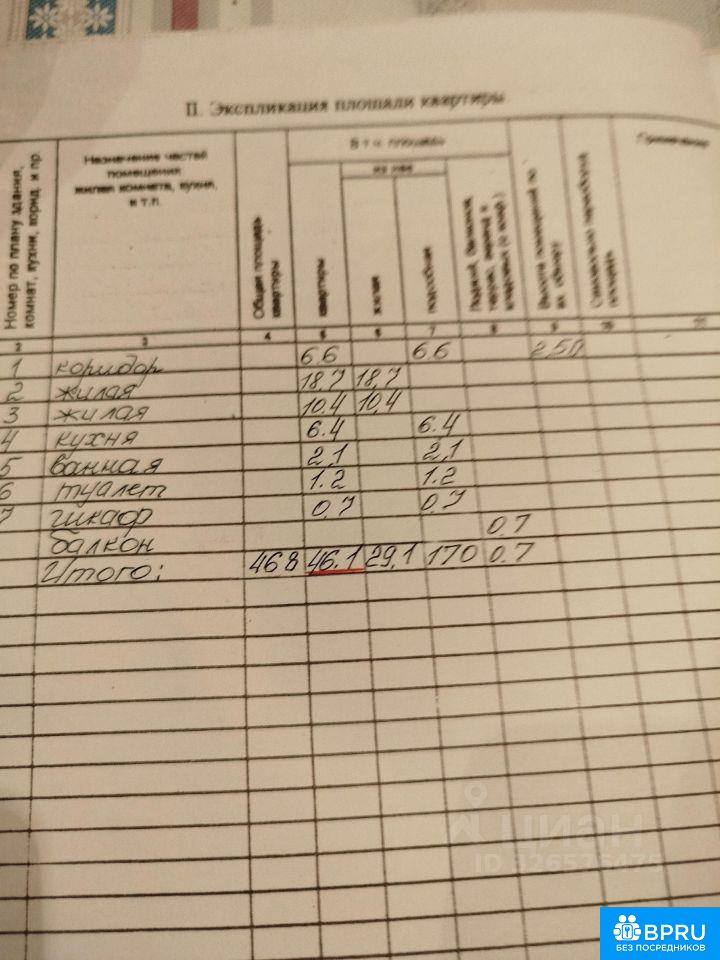 II. Экспликация площади квартиры
Номер по плану здания, комнат, кухни, корид. и пр.
Назначение частей
помещения
жилая комната, кухня,
и т.п.
Общая площадь квартиры
В т.ч. площадь
из нее
квартиры
жилая
подсобная
Высота помещений по их обмеру
Самовольно переоборуд. площадь
Примечание
2 3 4 5 6 7 8 9 10 11
1 коридор 6.6 6.6 2.50
2 жилая 18,7 18,7
3 жилая 10,4 10,4
4 кухня 6.4 6.4
5 ванная 2,1 2,1
6 туалет 1.2 1.2
7 шкаф 0,7 0,7
балкон 0.7
Итого: 46 8 46.1 29,1 17 0 0.7
циан
BPRU
БЕЗ ПОСРЕДНИКОВ